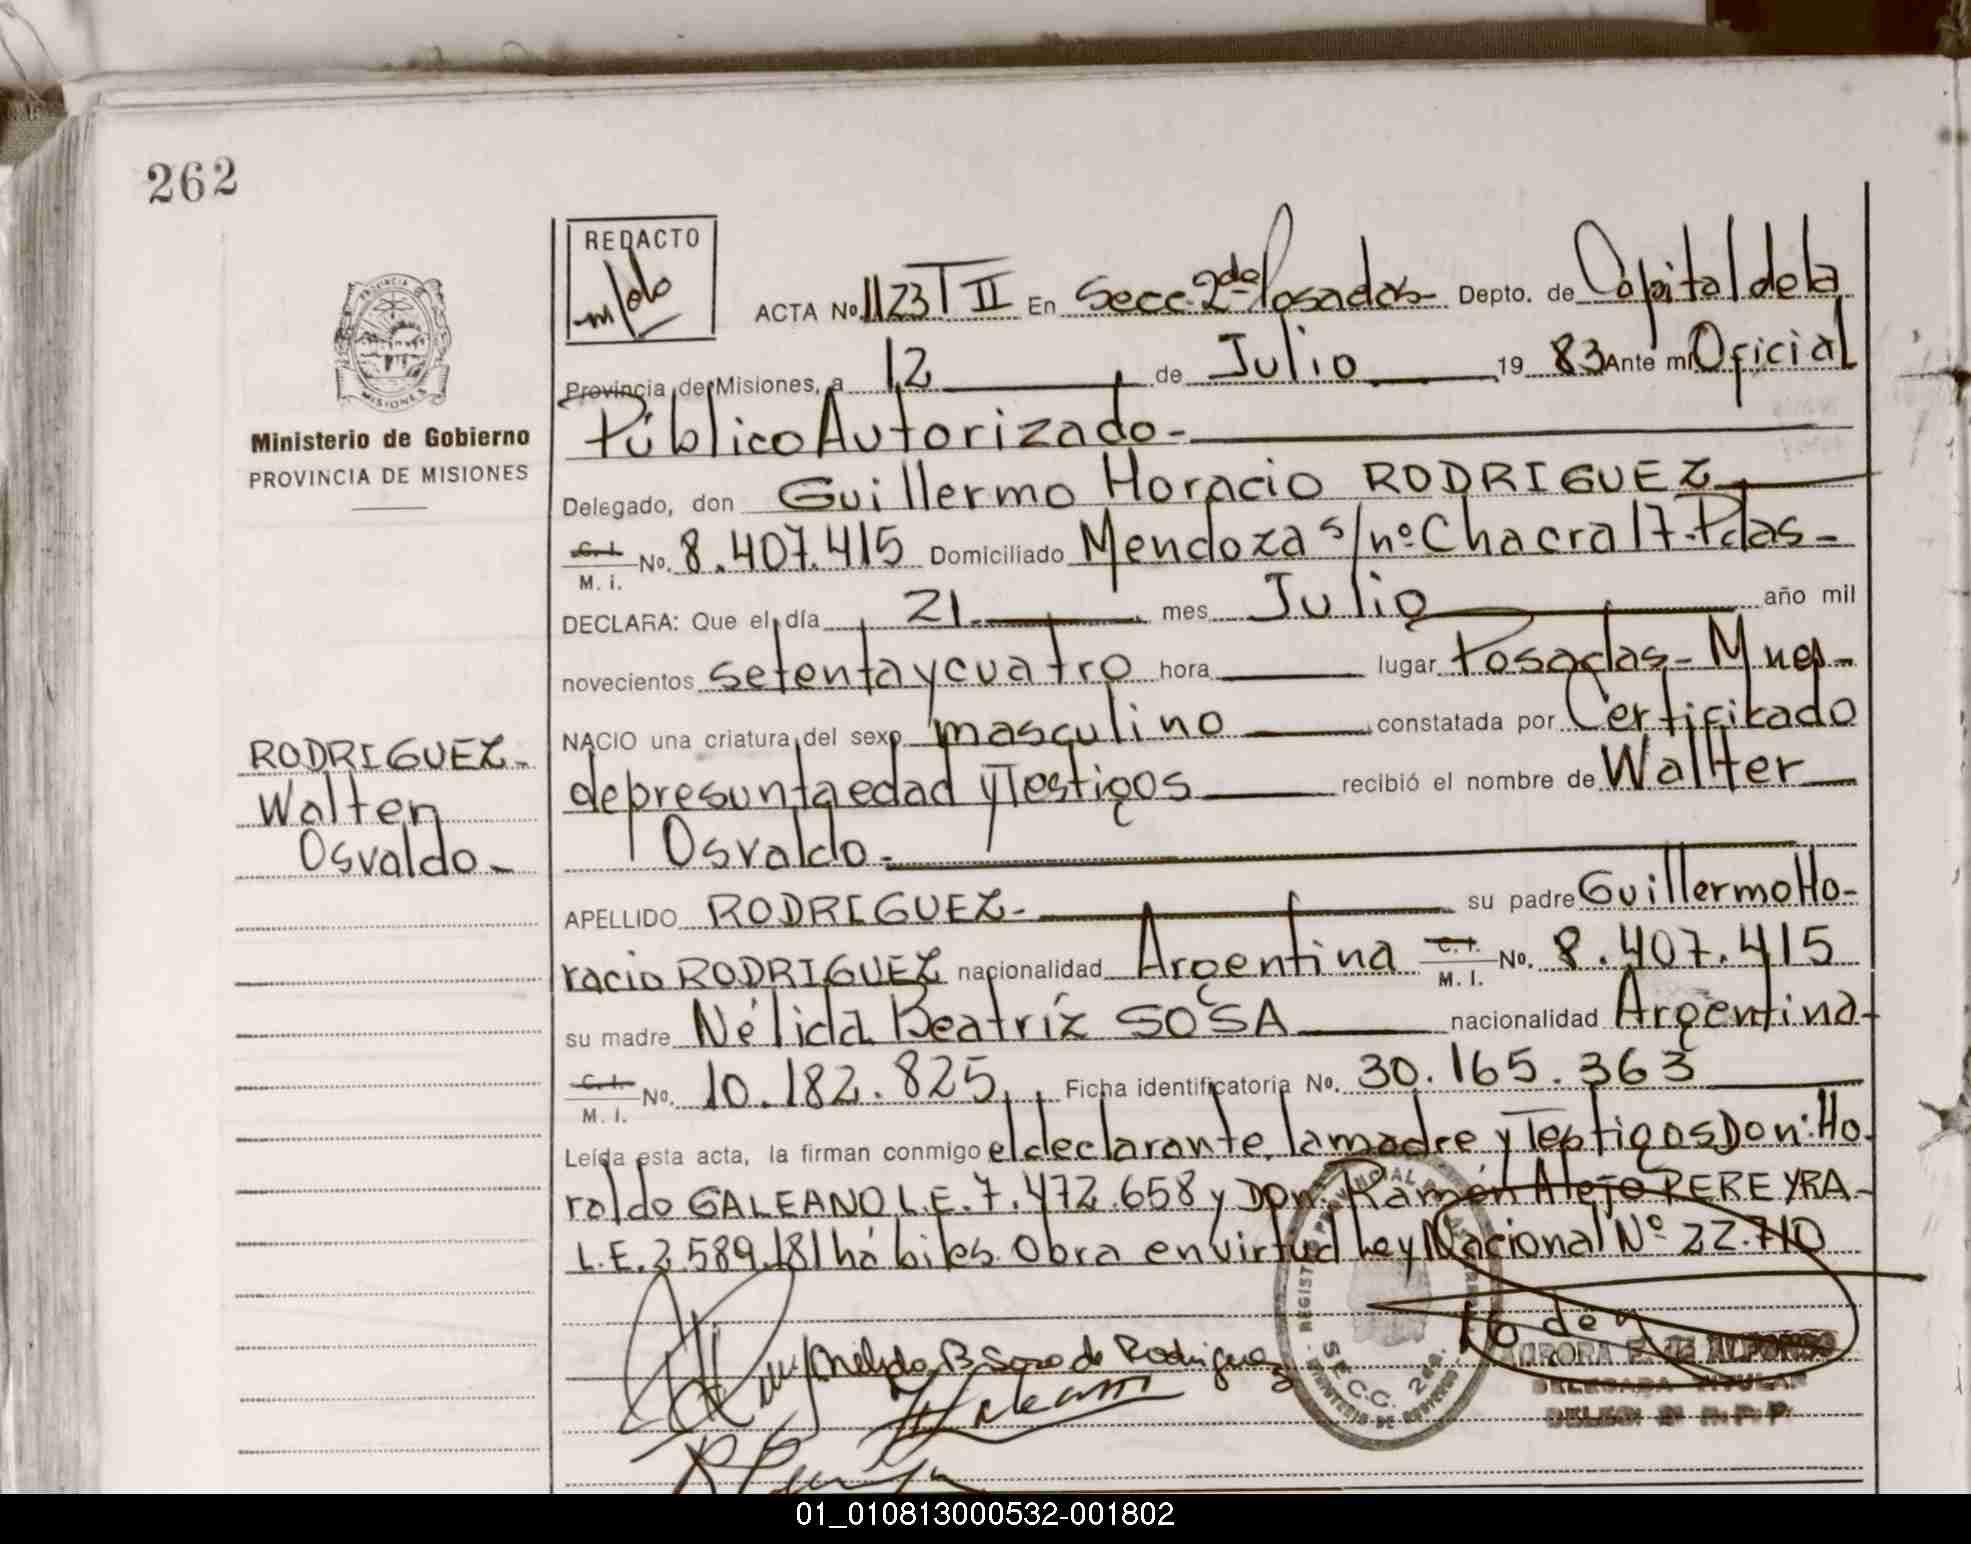 262
REDACTO
PROVINCIA
MISIONES
ACTA No. 1123 T II En Secc. 2da Posadas- Depto. de Capital de la
Provincia de Misiones, a 12 de Julio 19 83 Ante mi Oficial
Público Autorizado-
Ministerio de Gobierno
PROVINCIA DE MISIONES
Delegado, don Guillermo Horacio RODRIGUEZ
C. I. No. 8.407.415 Domiciliado Mendoza s/nº Chacra 17-Pdas-
M. i.
DECLARA: Que el día 21 mes Julio año mil
novecientos setenta y cuatro hora lugar Posadas- Mnes-
NACIO una criatura del sexo masculino constatada por Certificado
de presunta edad y Testigos recibió el nombre de Walter
Osvaldo-
RODRIGUEZ-
Walter
Osvaldo-
APELLIDO RODRIGUEZ- su padre Guillermo Ho-
racio RODRIGUEZ nacionalidad Argentina C. I. No. 8.407.415
M. I.
su madre Nélida Beatríz SOSA nacionalidad Argentina-
C. I. No. 10.182.825 Ficha identificatoria No. 30.165.363
M. I.
Leída esta acta, la firman conmigo el declarante, la madre y Testigos Don: Ho-
roldo GALEANO L.E. 7.472.658 y Don: Ramón Alejo PEREYRA-
L.E. 3.589.181 hábiles. Obra en virtud Ley Nacional Nº 22.710
Nelida B Sosa de Rodriguez
SECC. 2da.
AURORA E. DE ALFONSO
DELEGADA TITULAR
01_010813000532-001802